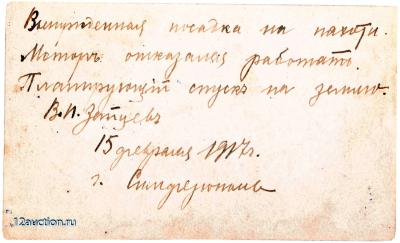 Вынужденная посадка на пахоти.
Моторъ отказался работать.
Планирующій спускъ на землю.
В.И. Зайцевъ
15 февраля 1917 г.
г. Симферополь
12auction.ru